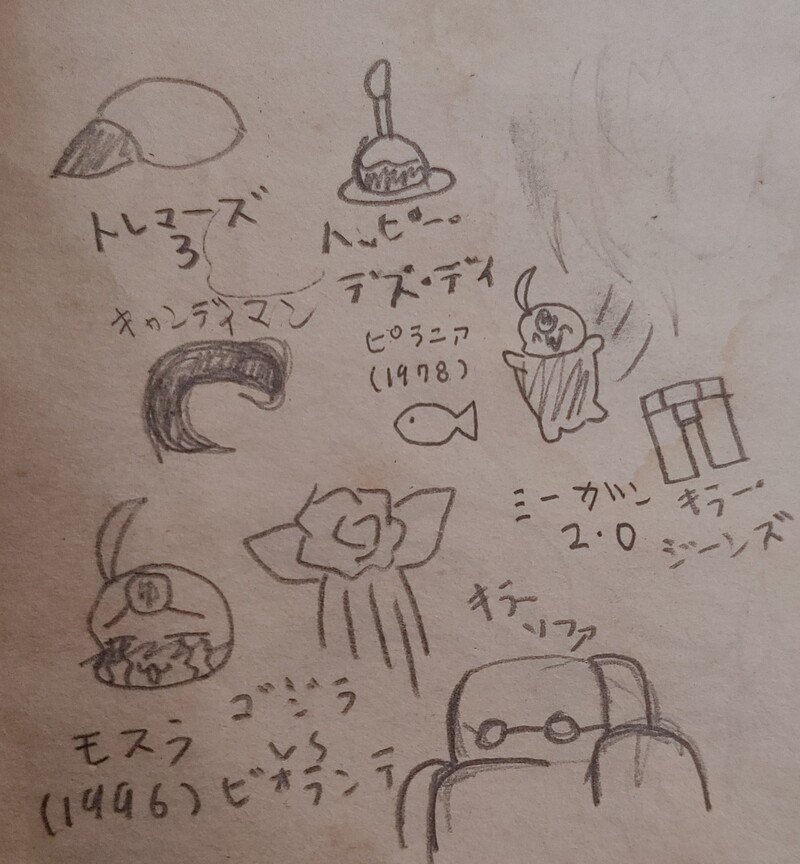 トレマーズ
3
ハッピー・
デス・デイ
キャンディマン
ピラニア
(1978)
ミーガン
2.0
キラー
ジーンズ
キラー
ソファ
モスラ
(1996)
ゴジラ
VS
ビオランテ